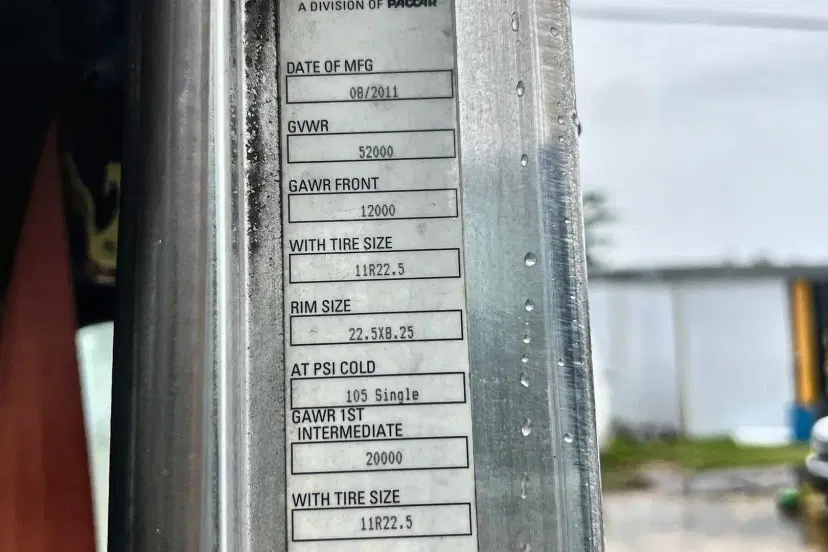 A DIVISION OF PACCAR
DATE OF MFG
08/2011
GVWR
52000
GAWR FRONT
12000
WITH TIRE SIZE
11R22.5
RIM SIZE
22.5X8.25
AT PSI COLD
105 Single
GAWR 1ST
INTERMEDIATE
20000
WITH TIRE SIZE
11R22.5